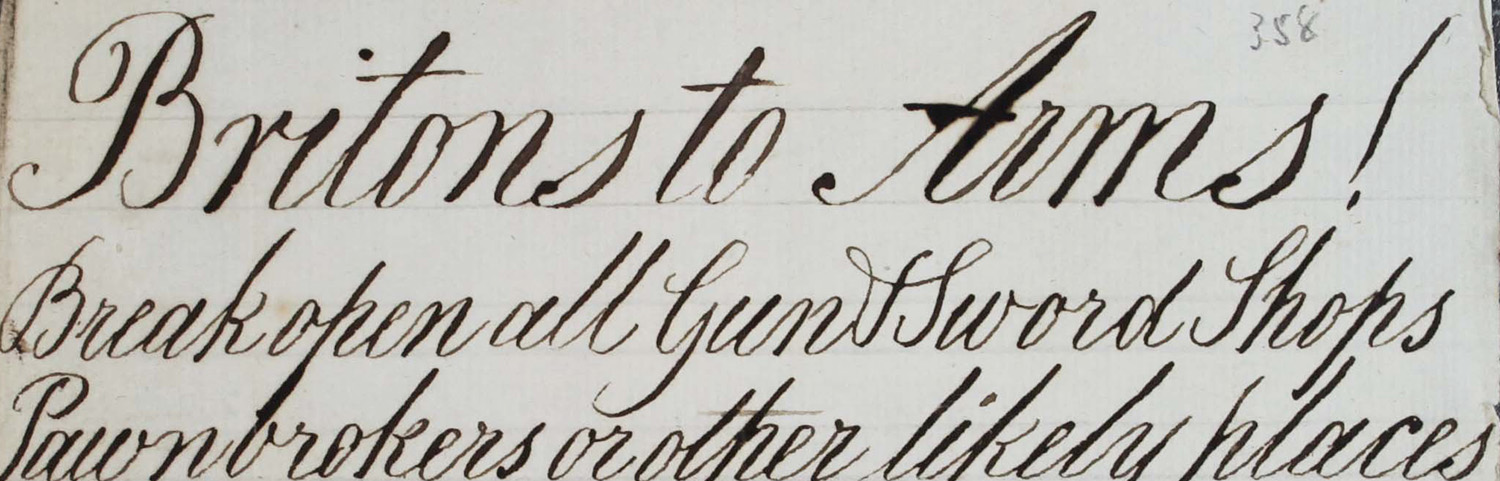 358
Britons to Arms!
Break open all Gun & Sword Shops
Pawnbrokers or other likely places